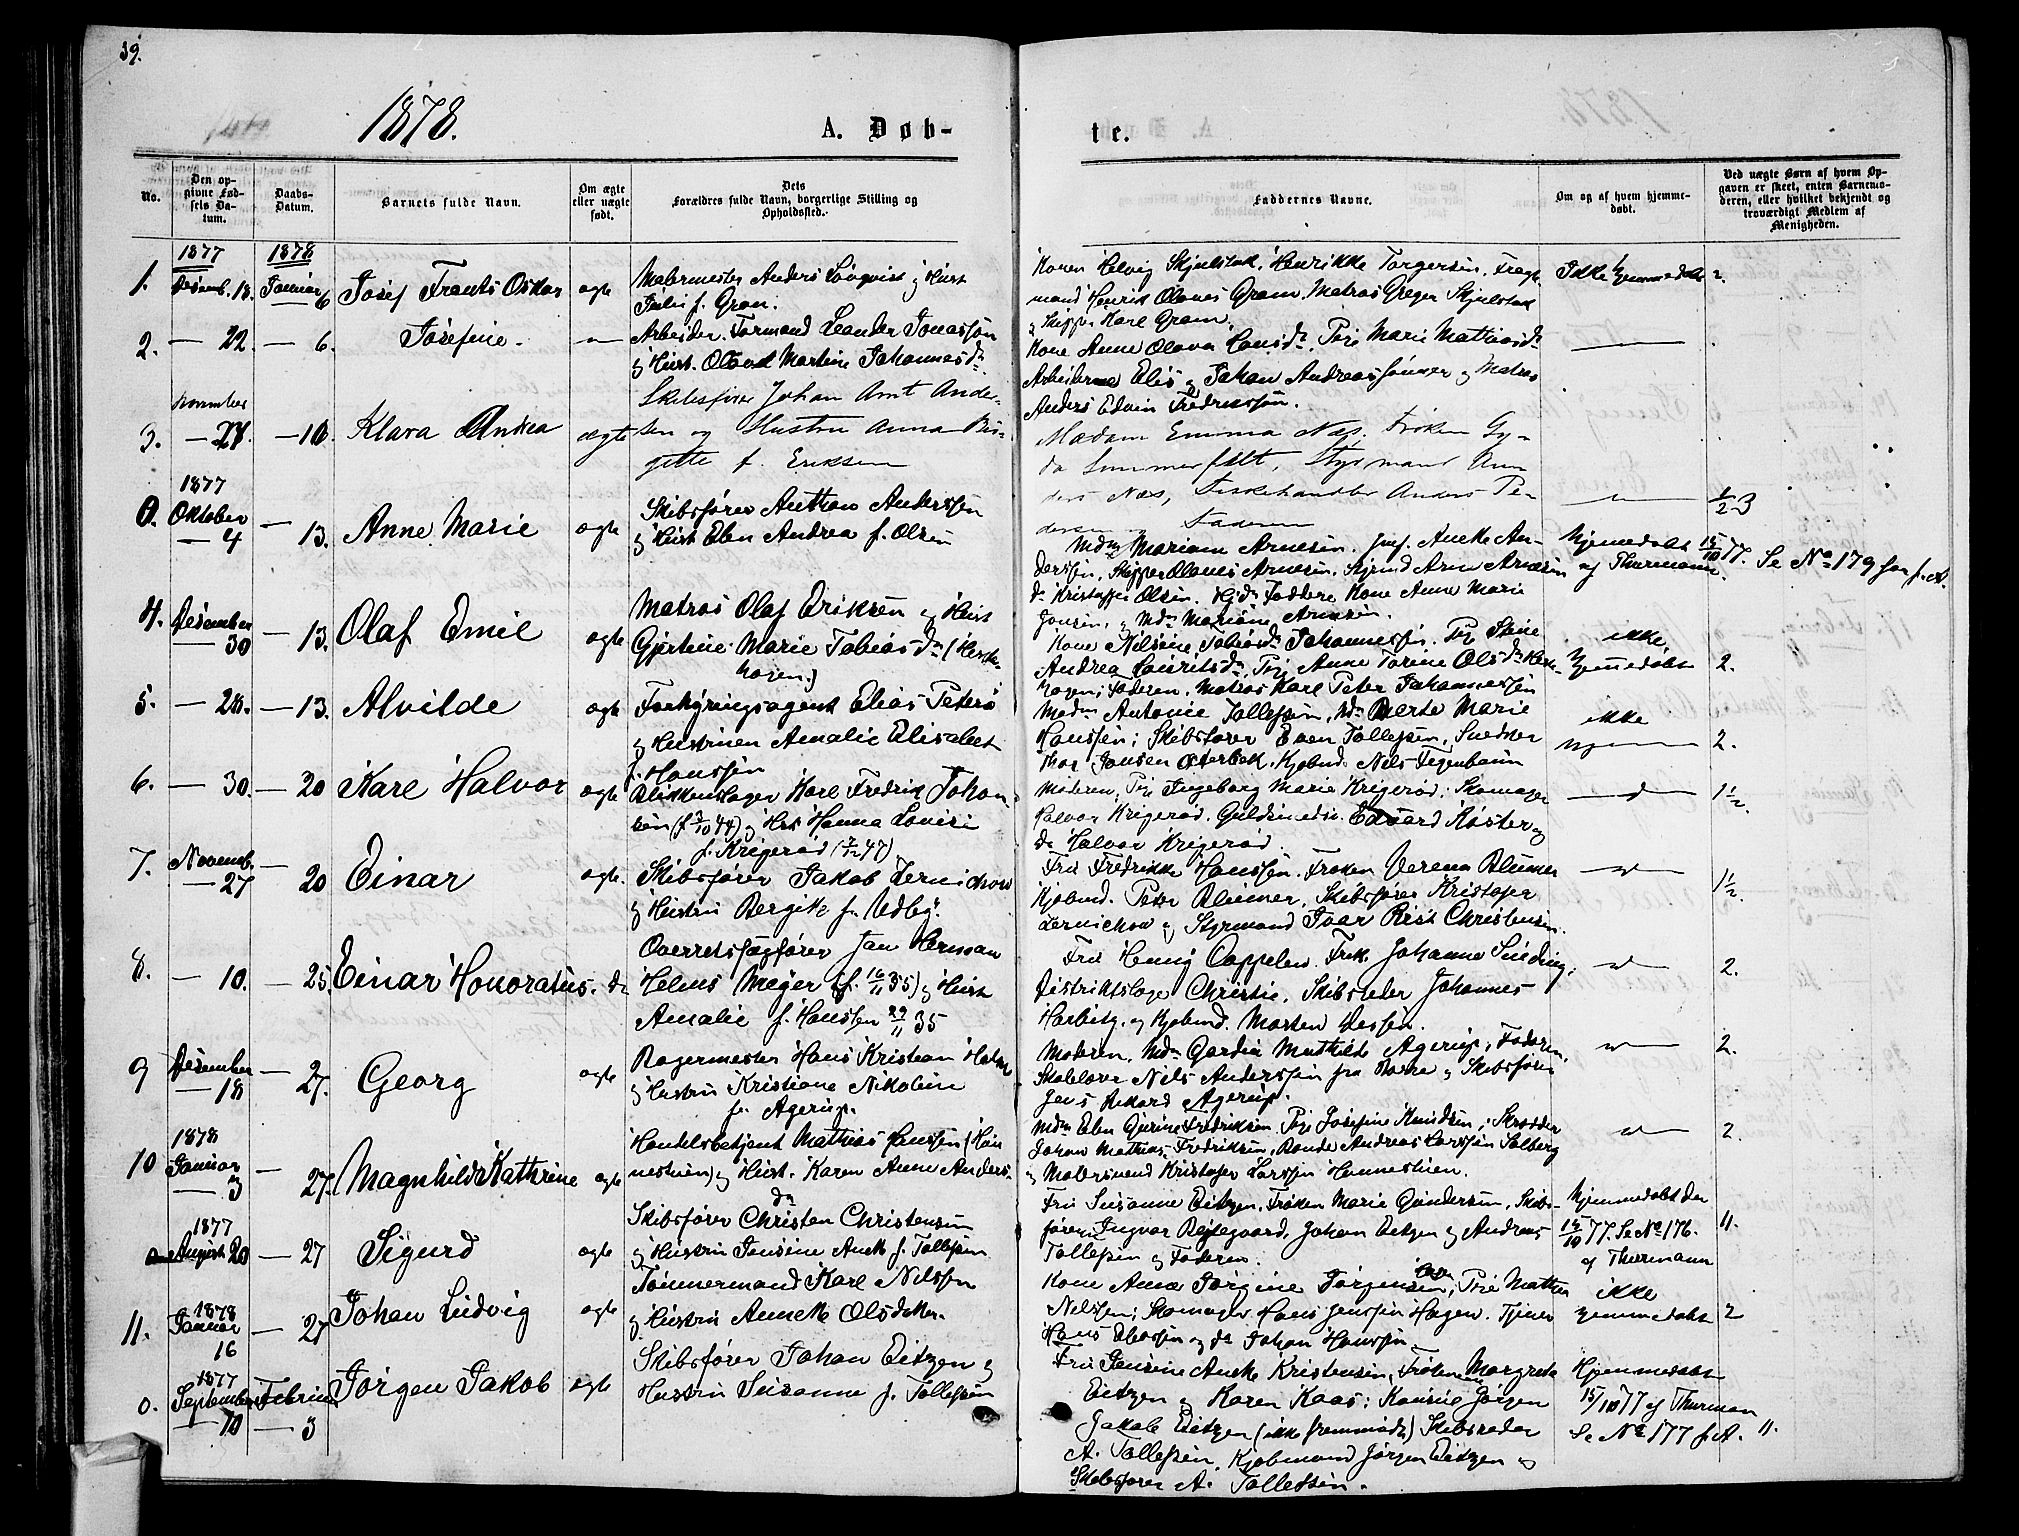 39.
1878.
A. Døb-
te.
No.
Den op-
givne Fød-
sels Da-
tum.
Daabs-
Datum.
Barnets fulde Navn.
Om ægte
eller uægte
født.
Dets
Forældres fulde Navn, borgerlige Stilling og
Opholdssted.
Faddernes Navne.
Om og af hvem hjemme-
døbt.
Ved uægte Børn af hvem Op-
gaven er skeet, enten Barnemo-
deren, eller hvilket bekjendt og
troværdigt Medlem af
Menigheden.
1877
1878
1.
Desemb. 18.
Januar 6
Josef Frants Oskar
egte
Malermester Anders Lövqvist og Hust
f. Gran.
Karen Helvig Skjulstad, Henrikke Torgersen,
mand Henrik Olaves Gram, Matros Greger Skjulstad
og Skipper Karl Gram.
Ikke hjemmedøbt
2.
2.
— 22.
— 6.
Josefine.
Arbeider. Formand Leander Jonassøn
og Hust. Olava Martine Johannesdr.
Kone Anne Olava Larsdr. Pige Marie Mathiasdr
Arbeiderne Elis og Johan Andreassønner og Matros
Anders Edvin Fredrikssøn.
3.
November
— 27.
— 10.
Klara Andrea
ægte
Skibsfører Johan Amt Ander-
sen og Hustru Anna Bir-
gitte f. Eriksen
Madam Emma Næs, Frøken Gy-
da Sommerfelt, Styrmand An
ders Næs, Fiskehandler Anders Pe-
dersen og Faderen
0.
1877
Oktober
— 4
— 13.
Anne Marie
egte
Skibsfører Anthon Anderssen
og Hust Elen Andrea f. Olsen
Mdm Mariann Arnesen, Jmf. Anette An-
derssen, Skipper Olaves Arnesen, Arne Arnesen
do Kristoffer Olsen. Hjdr. Faddere Kone Anne Marie
Jonsen, og Mdm Mariane Arnesen.
Hjemedøbt 15/10 77. Se No 179
af Thurmann.
4.
Desember
30
— 13.
Olaf Emil
egte
Matros Olaf Eriksen og Hust
Gjertine Marie Tobiasdr (Herst-
hagen.)
Kone Nilsine Tobiasdr Johannessen. Pige Stine
Andrea Lauritsdr, Pige Anne Torine Olsdr
hagen, Faderen. Matros Karl Peter Johannessen
ikke
hjemmedøbt
2.
5.
— 28.
— 13.
Alvilde
egte
Forhyringsagent Elias Petersø
og Hustruen Amalie Elisabet
f. Hanssen
Madm Antonie Tollefsen, Mdm Berte Marie
Hanssen; Skibsfører Even Tollefsen, Snedker
Thor Jansen Østerbek, Kjøbmd. Nils Fegenbaum
ikke
2.
6.
— 30.
— 20
Karl Halvor
egte
Blikkenslager Karl Fredrik Johan-
sen (f 3/10 44) og Hus Hanna Lovise
f. Krigerød (7/12 47)
Moderen, Pige Ingeborg Marie Krigerød; Skomager
Halvor Krigerød, Guldsmedsv. Edvard Køster og
do Halvor Krigerød.
1½.
7.
Novemb.
— 27
— 20
Einar
egte.
Skibsfører Jakob Lernichow
og Hustru Bergite f. Udby.
Fru Fredrikke Hanssen. Frøken Verena Blumer
Kjøbmd. Peter Blumer, Skibsfører Kristofer
Lernichow og Styrmand Ivar Rist Christensen.
1½.
8.
— 10.
— 25.
Einar Honoratus.
do
Overretssagfører Jan Herman
Helms Meyer (f. 16/11 35) og Hust
Amalie f. Hanssen 29/11 35
Fru Henny Cappelen. Frk. Johanne Sinding,
Distriktslæge Christie, Skibsreder Johannes
Harbitz, og Kjøbmd. Morten Dessen.
2.
9
Desember
— 18
— 27.
Georg
egte
Bagermester Hans Kristian Holm
og Hustru Kristiane Nikoline
f. Agerup.
Moderen, Mdm Gardia Mathilde Agerup, Faderen,
Skolelærer Nils Anderssen fra Borre og Skibsfører
Jens Rikard Agerup.
2.
10
1878
Januar
— 3
— 27.
Magnhild Kathrine
egte
Handelsbetjent Mathias Hanssen (Hau
nestuen) og Hust. Karen Anne Anders-
dr
Mdm Elen Gurine Fredriksen, Pige Josefine Knudsen; Skrædder
Johan Mathias Fredriksen, Bonde Andreas Larssen Solberg
og Malersvend Kristofer Larssen Hannestuen.
2.
0
1877
August 20
— 27
Sigurd
egte
Skibsfører Christen Christensen
og Hustru Jansine Anette f. Tollefsen
Fru Susanne Eitzen, Frøken Marie Gundersen, Skibs-
førerne Ingvar Bøjegaard, Johan Eitzen og Andreas
Tollefsen og Faderen.
Hjemmedøbt den
15/10 77. Se No 176.
af Thurmann
11.
11.
1878
Januar
16
— 27
Johan Ludvig
egte
Tømmermand Karl Nilssen
og Hustru Anette Olsdatter.
Kone Anne Jørgine Jørgensen, Pige Mathea
Nilssen; Skomager Hans Jenssen Hagen. Tjener
Hans Eliassen og do Johan Hanssen
ikke
hjemmedøbt
2
0.
1877
September
— 10
Februar
— 3
Jørgen Jakob
egte
Skibsfører Johan Eitzen og
Hustru Susanne f. Tollefsen
Fru Jansine Anette Kristensen, Frøknerne Margrete
Eitzen og Karen Kaas; Konsul Jørgen
Jakob Eitzen (ikke fremmødt) Skibsreder
A. Tollefsen, Kjøbmand Jørgen Eitzen og
Skibsfører A. Tollefsen.
Hjemmedøbt
15/10 77 af Thurman
Se No 177 f. A.
11.